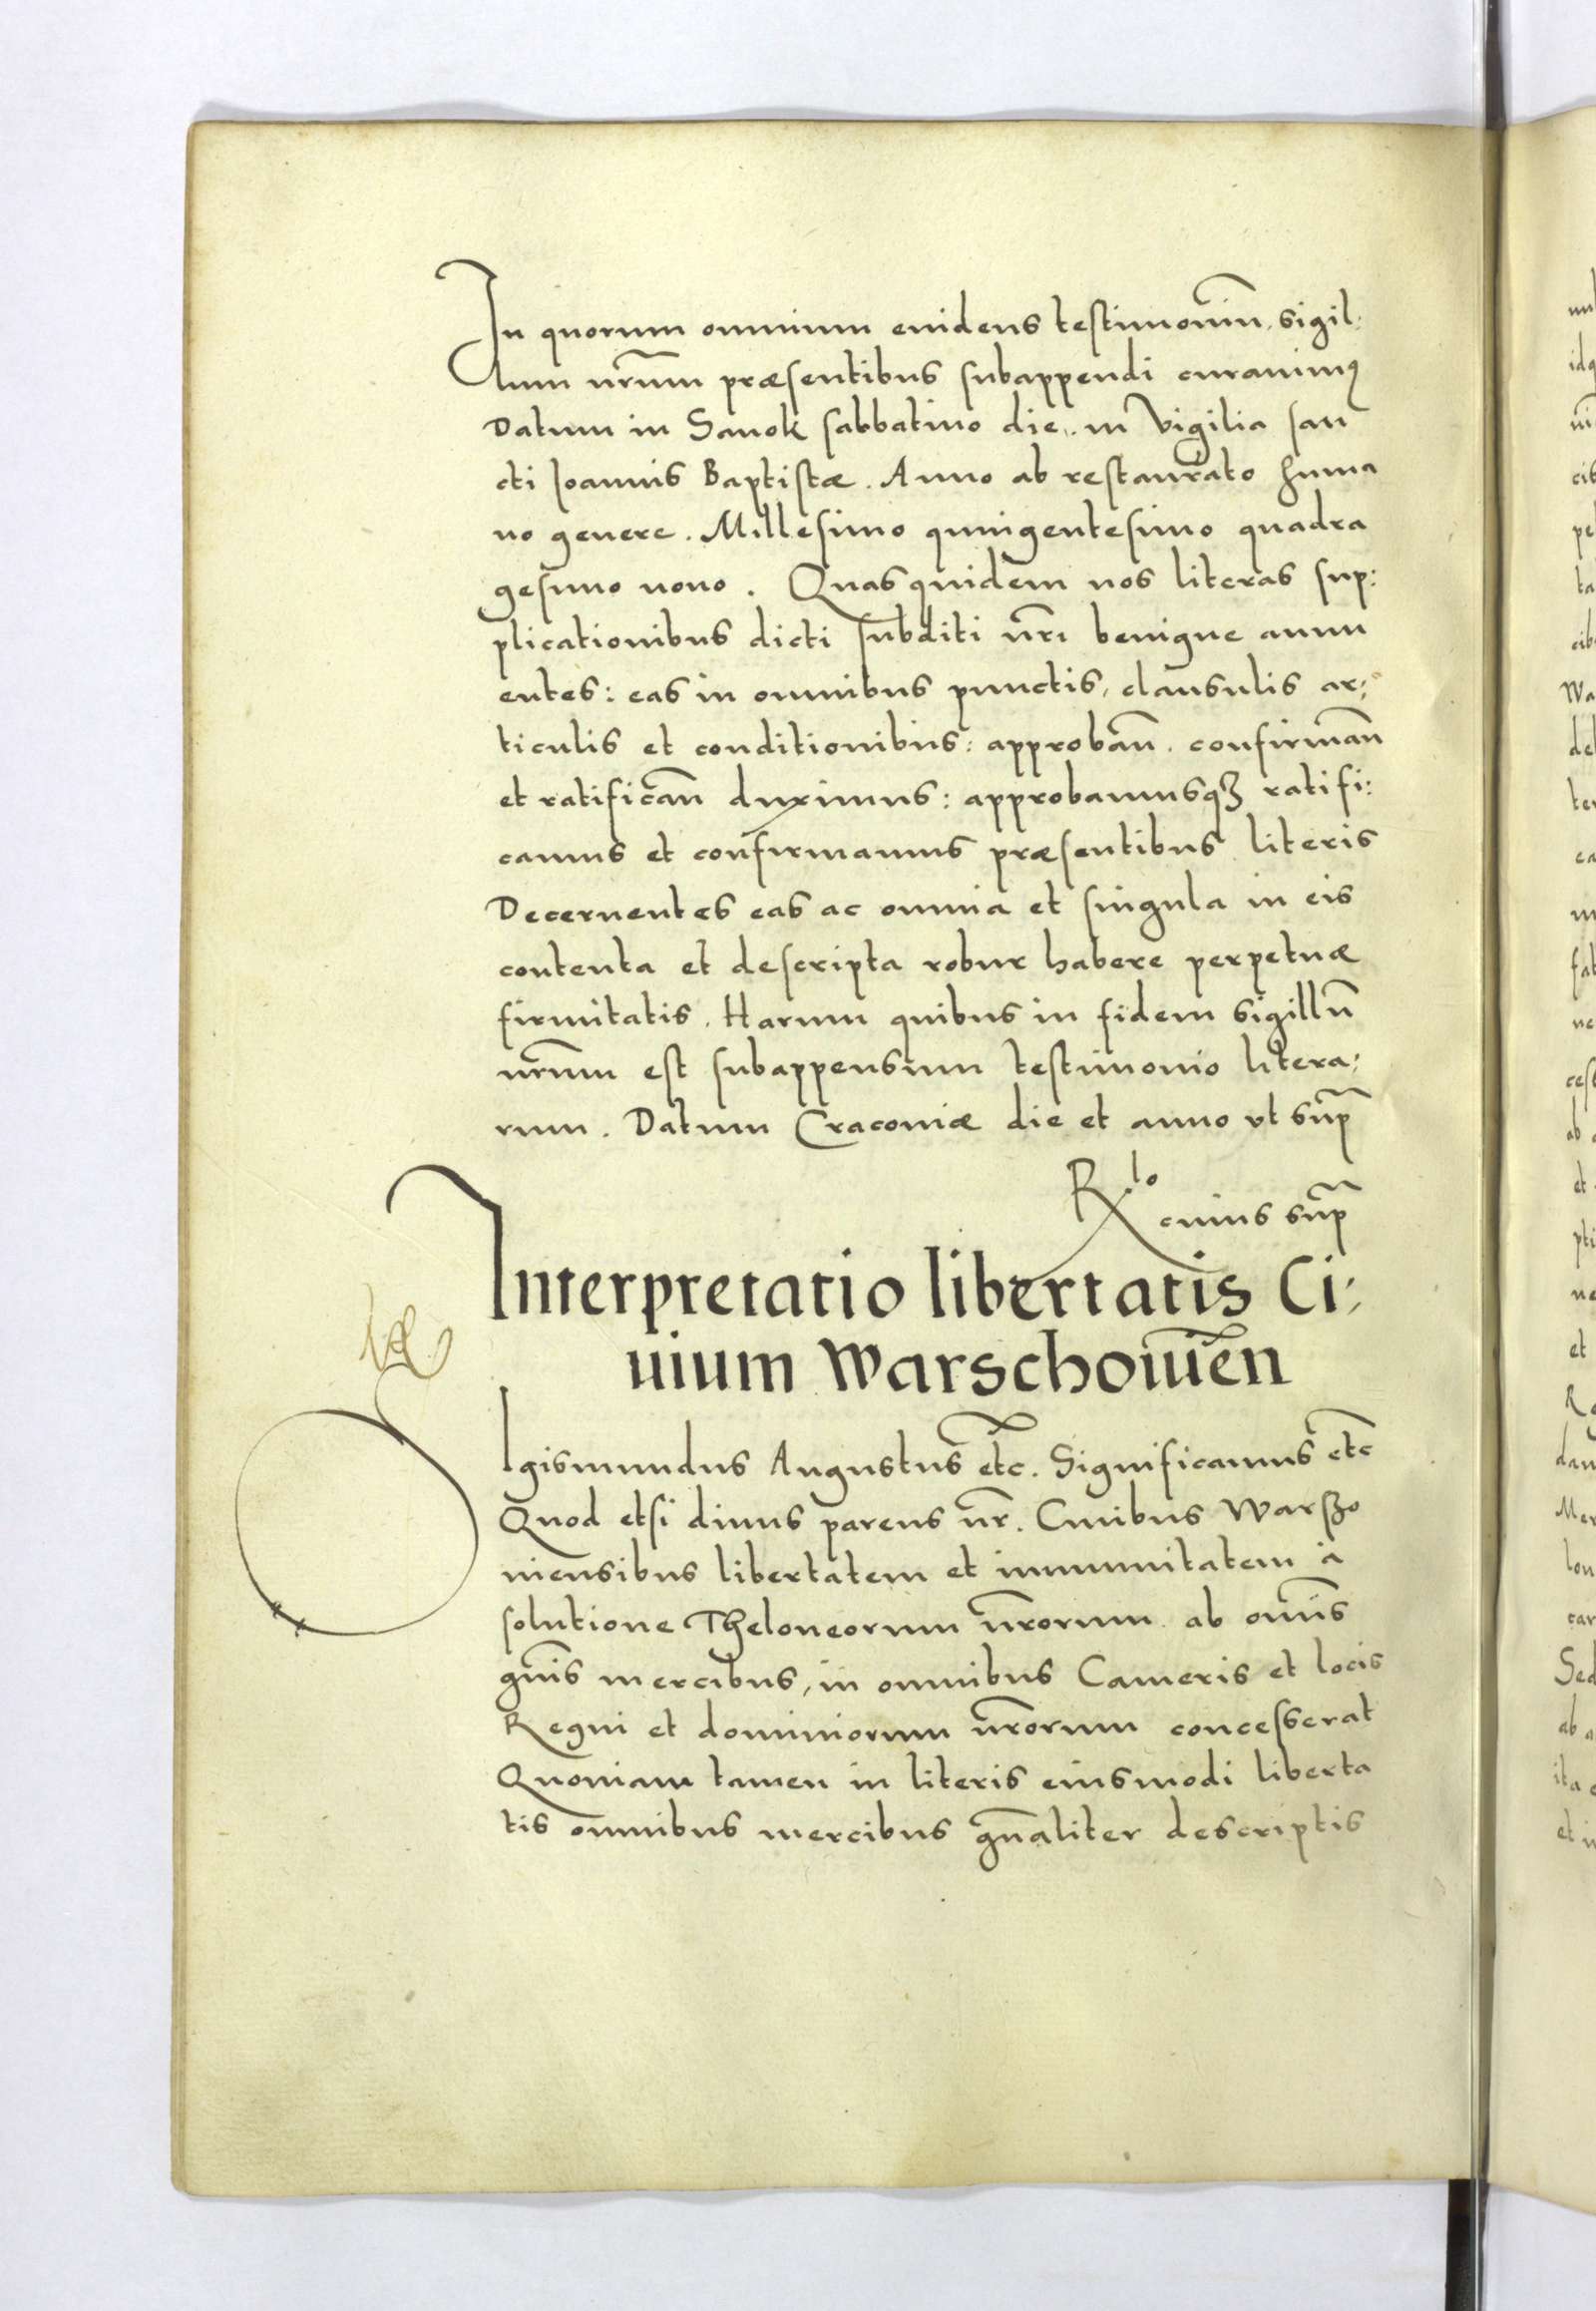 In quorum omnium euidens testimoniũ, sigil:
lum nr̃um præsentibus subappendi curauimꝰ
Datum in Sanok sabbatino die. in Vigilia san
cti Ioannis Baptistæ. Anno ab restaurato huma
no genere. Millesimo quingentesimo quadra
gesimo nono. Quas quidem nos literas sup:
plicationibus dicti subditi nr̃i benigne annu
entes: eas in omnibus punctis, clausulis ar:
ticulis et conditionibus: approbañ. confirmañ
et ratificañ duximus: approbamusqꝫ ratifi:
camus et confirmamus præsentibus literis
Decernentes eas ac omnia et singula in eis
contenta et descripta robur habere perpetuæ
firmitatis. Harum quibus in fidem sigillũ
nr̃um est subappensum testimonio litera:
rum. Datum Cracouiæ die et anno vt sup̃
R.lo
cuius sup̃
Interpretatio libertatis Ci:
uium Warschouieñ
Sigismundus Augustus etc̃. Significamus etc̃
Quod etsi diuus parens nr̃. Ciuibus Warszo
uiensibus libertatem et immunitatem à
solutione Theloneorum nr̃orum ab om̃is
gñis mercibus, in omnibus Cameris et locis
Regni et dominiorum nr̃orum concesserat
Quoniam tamen in literis eiusmodi liberta
tis omnibus mercibus gñaliter descriptis